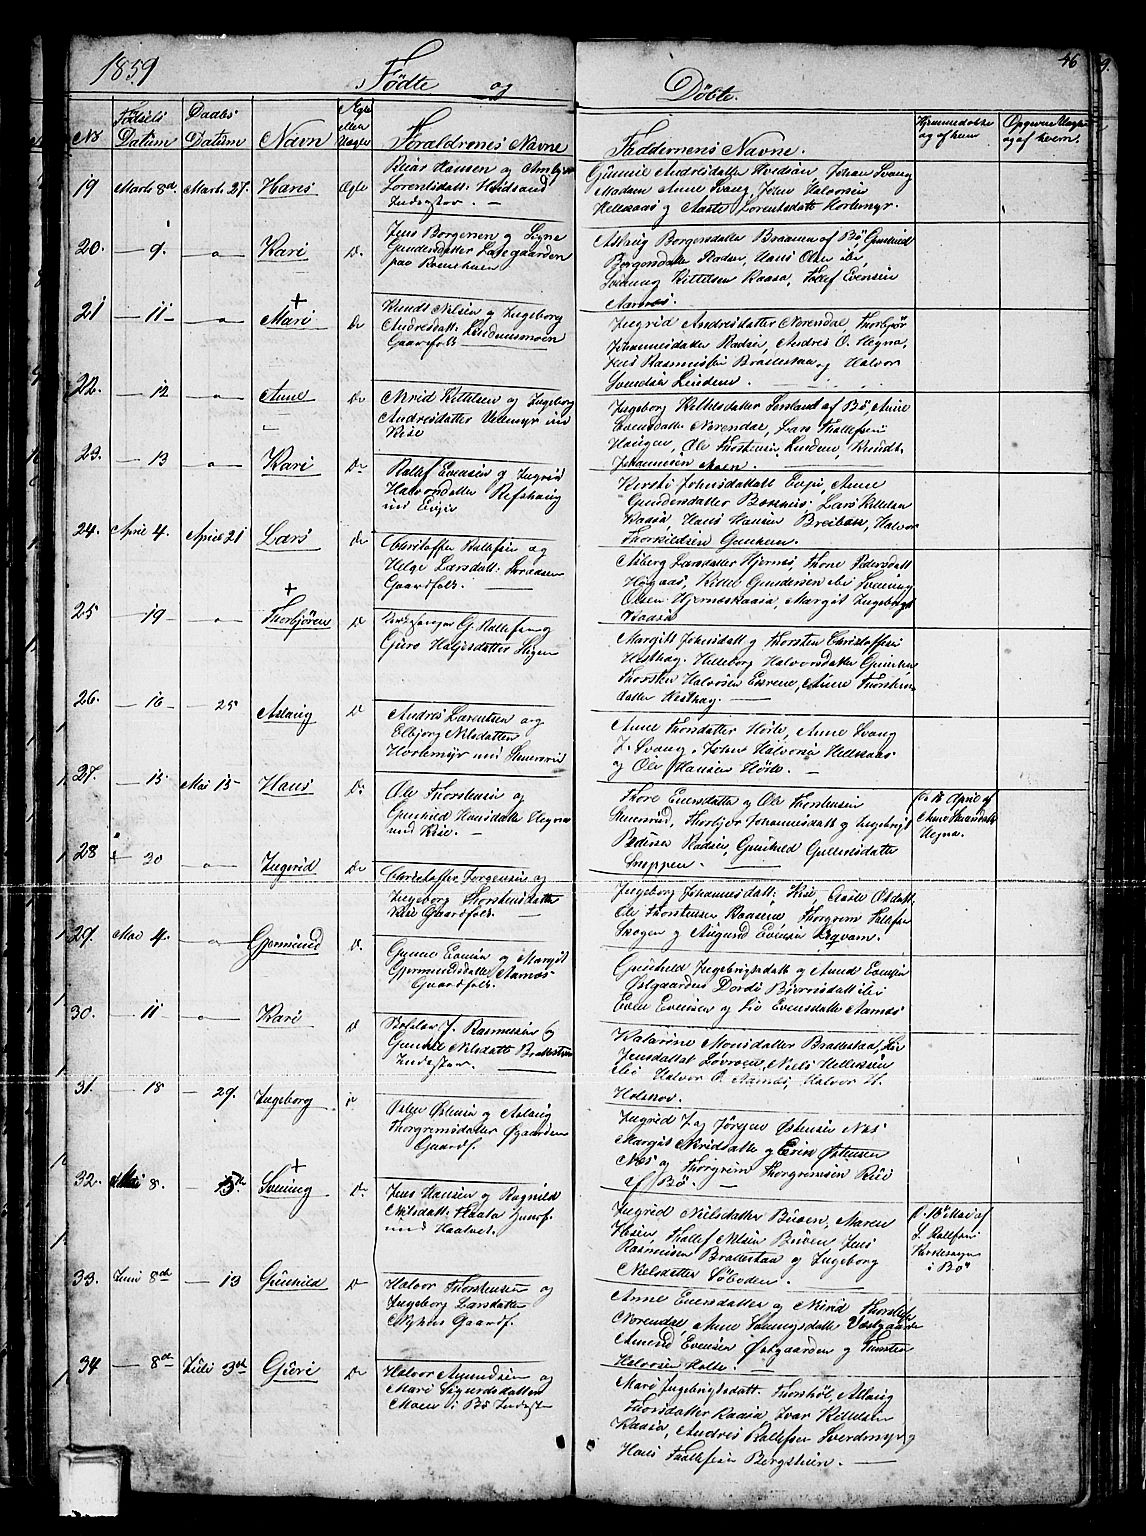 1859 Fødte og Døbte. 46
No Fødsels Datum Daabs Datum Navn Ægte eller Uægte Foraldrenes Navne Faddernenes Navne. Hjemmedøbte og af hvem Opgivne Uægte og af hvem.
19 Marts 8d. Marts 27. Hans Ægte
Lorentsdatt: Hvidsand
Indester. —
Gunnie Andreisdatter Hvidsan, Johan Svang
Madam Anne Svang, John Halvorsen
Hellesaas og Aaste Lorentsdatt Hortemyr.
20. — 9. — " — Kari D.
Jens Borgersen og Signe
Gundersdatter Ladegaarden
paa Romsteen
Aslaug Borgersdatter Braanen af Bø, Gunhild
Borgersdatter Roden, Hans Olsen ibi
Svenung Kittelsen Raasa, Tollef Evensen
Aarnæs.
21 — 11 — " — + Mari Do
Knudt Nilsen og Ingeborg
Andreisdatt: Lindemsmoen
Gaardfolk
Ingrid Andreisdatter Norendal, Thorbjør
Johannesdatter Radsie, Andres O. Hegna,
Jens Rasmussen Brattestaa og Halvor
Svendsen Lindem.
22. — 12 — " — Anne Do
Nirid Kittelsen og Ingeborg
Andreisdatter Vellemyr un
Riise
Ingeborg Kittelsdatter Sorsland af Bø, Anne
Evensdatter Norendal, Lars Thollefsen
Haugen, Ole Thorstensen Lindem, Knudt
Johannesen Moen.
23. — 13 — " — Kari Do
Rollef Evensen og Ingrid
Halvorsdatter Refshaug
und Evju
Kirsti Johnsdatter Evju, Anne
Gundersdatter Bosnæs, Lars Kittelsen
Raasa, Hans Hansen Breibøe, Halvor
Thorkildsen Gunheim.
24. April 4. April 21 Lars Do
Christoffer Rollefsen og
Helge Larsdatt: Soraasen
Gaardfolk.
Asberg Larsdatter Hjernes, Thone Pedersdatt
Høgaas, Kittel Gundersen ibi Svenung
Olsen Hjernæskaasa, Margit Ingebregts
Kaasa
25 — 19 — " — + Thorbjøren D
Kirkesanger G. Rollefsen og
Guro Halgisdatter Stigen
Margitt Johnsdatt og Thorsten Christoffersen
Hesthag, Helleborg Halvorsdatter Gunheim
Thorsten Halvorsen Evrene, Anne Thorstens
datter Hesthag.
26. — 16 — 25 Aslaug D
Andres Larentsen og
Elbjorg Nilsdatter
Hortemyr und Stenersrud
Anne Thorsdatter Holte, Anne Svang
J. Svang, John Halvorsen Hellesaas
og Ole Hansen Holte. —
27. — 15 Mai 15— Hans Do
Ole Thorstensen og
Gunhild Hansdatter Hegna
und Riise. —
Thore Evensdatter og Ole Thorstensen
Stenersrud, Thorbjør Johannesdatt og Ingebregt
Pedersen Radsie, Gunhild Gulleiksdatter
Snoppen. —
D. 18 April af
Anne Strandsdatter
Hegna.
28 — 30 — " — Ingerid Do
Christoffer Jorgensen og
Ingeborg Thorstensdatter
Riise Gaardfolk. —
Ingeborg Johannesdatt: Riise, Aaste Olsdatt
Ole Thorstensen Raasene, Thorgrim Tollefsen
Skogen og Augund Evensen Regvam.
29. Mai 4. — " — Gjermund D.
Gunne Evensen og Margit
Gjermundsdatter Aarnes
Gaardfolk.
Gunhild Ingebrigtsdatt og Aanund Evensen
Østgaarden, Dordi Bjørnsdatt ibi
Even Evensen og Liv Evensdatter Aarnæs
30. — 11 — " — Kari D
J. Rasmussen og
Gunhild Nilsdatt Brattestaa
Indester. —
Katarine Monsdatter Brattestaa, Liv
Jensdatter Løvroen, Niels Hellessen
ibi Halvor O. Aarnæs, Halvor H.
Holskov.
31. — 18 — 29. Ingeborg D
Osten Østensen og Aslaug
Thorgrimsdatter Øgaarden
Gaardf.
Ingrid J. og Jørgen Østensen Næs
Margit Niridsdatter og Erik Ostensen
Næs og Thorgrim Thorgrimsen Riise
af Bø.
32. Mai 8. — 13de + Svenung D.
Jens Hansen og Ragnild
Nilsdatt: Haata Huusf.
und Haatvet.
Ingrid Nielsdatter Bøsen, Maren
Hesen, Tollef Nilsen Bøsen, Jens
Rasmussen Brattestaa og Ingeborg
Nielsdatter Søboden.
D. 18de Mai af
S. Rollefsen
Kirkesanger
i Bø
33. Juni 8de — 13 Gunhild D
Halvor Thorstensen og
Ingeborg Larsdatter
Nyhus Gaardf.
Anne Evensdatter og Nirid Thorsteens
Norendal, Anne Svenungsdatt Vestgaarden
Amund Evensen Østgaarden og Thorsten
Halvorsen Holte. —
34 — 8de Juli 3de Guri Do
Halvor Amundsen og
Mari Sigurdsdatter
Moen i Bø Indester
Mari Ingebrigtsdatt. Thorshol, Aslaug
Thorsdatter Raasa, Ivar Kittelsen
Raasa, Andres Rollefsen Sverdmyr og
Hans Thollefsen Bergsteen. —